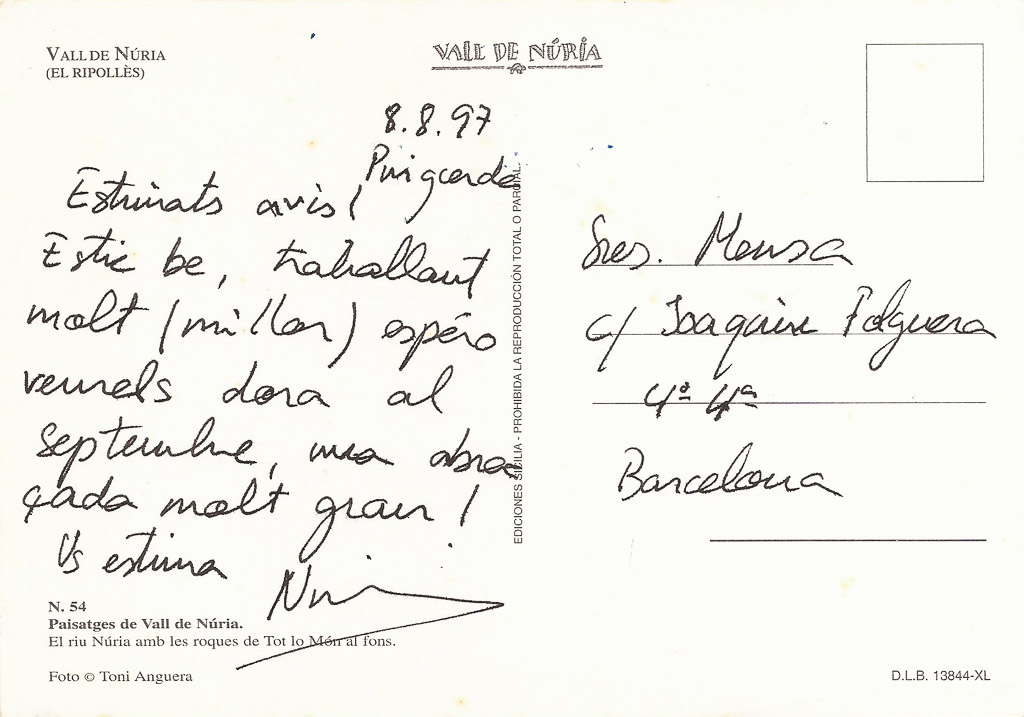 VALL DE NÚRIA
(EL RIPOLLÈS)
VALL DE NÚRIA
8.8.97
Puigcerdà
Estimats avis!
Estic be, treballant
molt (millor) espero
veurels dora al
septembre, una abra
çada molt gran!
Us estima
N. 54
Paisatges de Vall de Núria.
El riu Núria amb les roques de Tot lo Món al fons.
Foto © Toni Anguera
EDICIONES SICILIA - PROHIBIDA LA REPRODUCCIÓN TOTAL O PARCIAL.
Sres. Mensa
c/ Joaquim Folguera
4º 4ª
Barcelona
D.L.B. 13844-XL